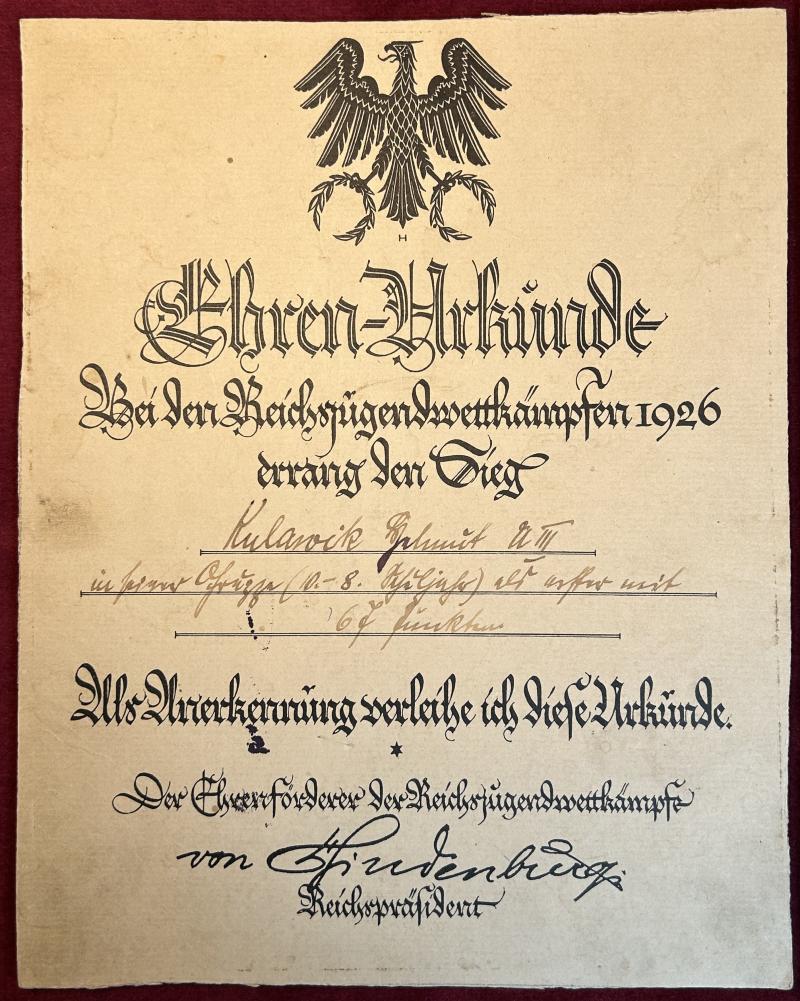 H
Ehren-Urkunde
Bei den Reichsjugendwettkämpfen 1926
errang den Sieg
Kulawik Helmut U III
in seiner Gruppe (V.-8. Schuljahr) als erster mit
67 Punkten
Als Anerkennung verleihe ich diese Urkunde.
Der Ehrenförderer der Reichsjugendwettkämpfe
von Hindenburg.
Reichspräsident